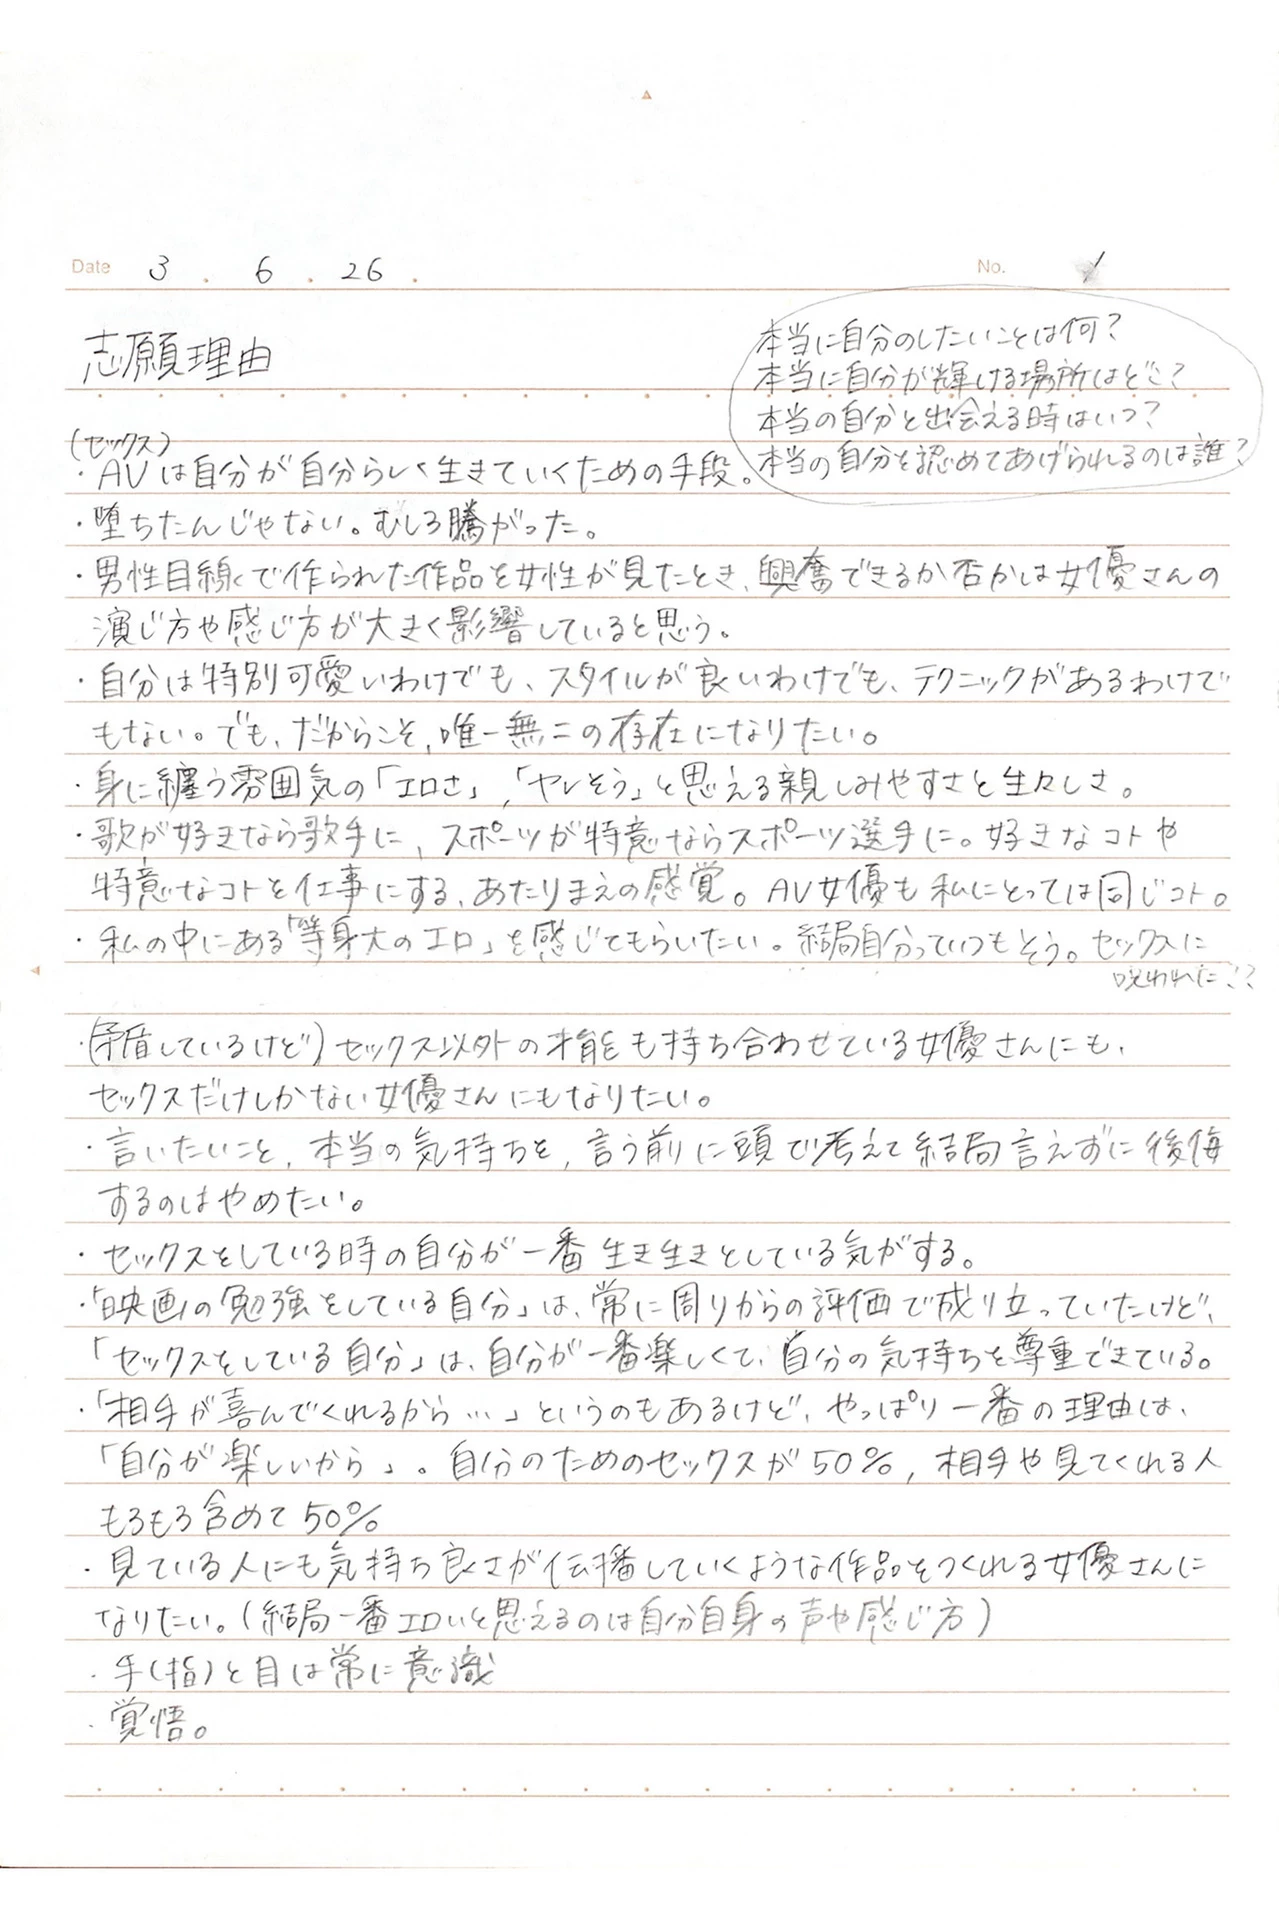 Date 3 . 6 . 26 .
No. 1
志願理由
本当に自分のしたいことは何？
本当に自分が輝ける場所はどこ？
本当の自分と出会える時はいつ？
本当の自分を認めてあげられるのは誰？
(セックス)
・AVは自分が自分らしく生きていくための手段。
・堕ちたんじゃない。むしろ騰がった。
・男性目線で作られた作品を女性が見たとき、興奮できるか否かは女優さんの
演じ方や感じ方が大きく影響していると思う。
・自分は特別可愛いわけでも、スタイルが良いわけでも、テクニックがあるわけで
もない。でも、だからこそ、唯一無二の存在になりたい。
・身に纏う雰囲気の「エロさ」,「ヤレそう」と思える親しみやすさと生々しさ。
・歌が好きなら歌手に、スポーツが特意ならスポーツ選手に。好きなコトや
特意なコトを仕事にする、あたりまえの感覚。AV女優も私にとっては同じコト。
・私の中にある「等身大のエロ」を感じてもらいたい。結局自分っていつもそう。セックスに
呪われた??
・(矛盾しているけど)セックス以外の才能も持ち合わせている女優さんにも、
セックスだけしかない女優さんにもなりたい。
・言いたいこと、本当の気持ちを、言う前に頭で考えて結局言えずに後悔
するのはやめたい。
・セックスをしている時の自分が一番生き生きとしている気がする。
・「映画の勉強をしている自分」は、常に周りからの評価で成り立っていたけど、
「セックスをしている自分」は、自分が一番楽しくて、自分の気持ちを尊重できている。
・「相手が喜んでくれるから…」というのもあるけど、やっぱり一番の理由は、
「自分が楽しいから」。自分のためのセックスが50%, 相手や見てくれる人
もろもろ含めて50%
・見ている人にも気持ち良さが伝播していくような作品をつくれる女優さんに
なりたい。(結局一番エロいと思えるのは自分自身の声や感じ方)
・手(指)と目は常に意識
・覚悟。